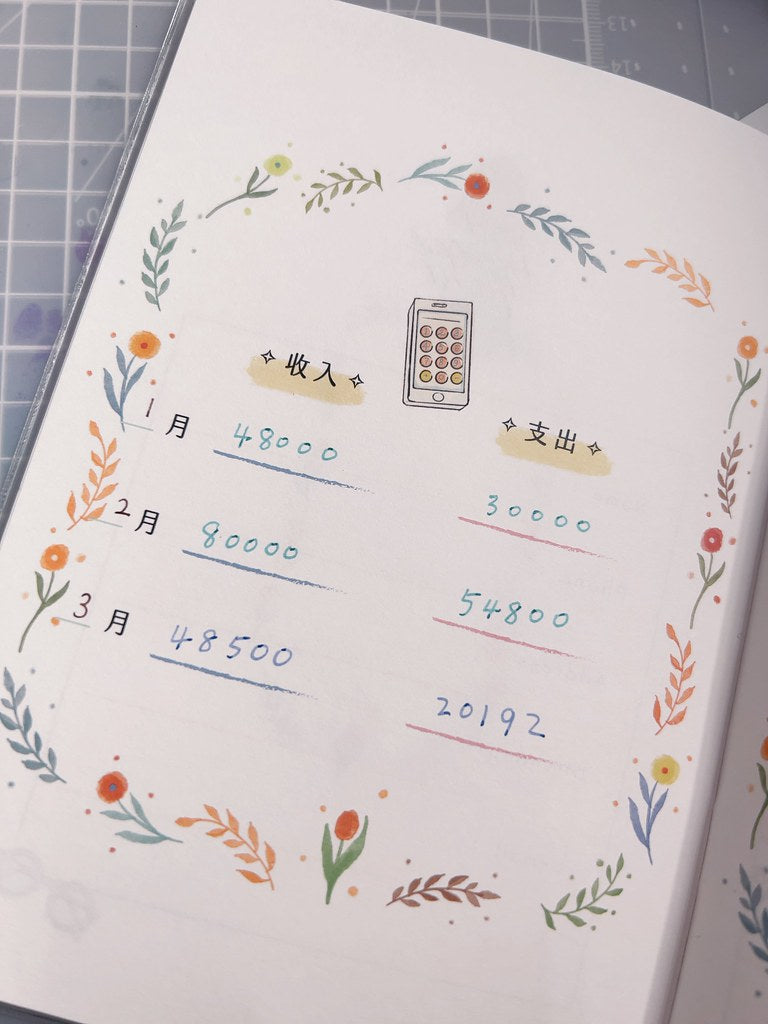 收入
支出
1月 48000 30000
2月 80000 54800
3月 48500 20192